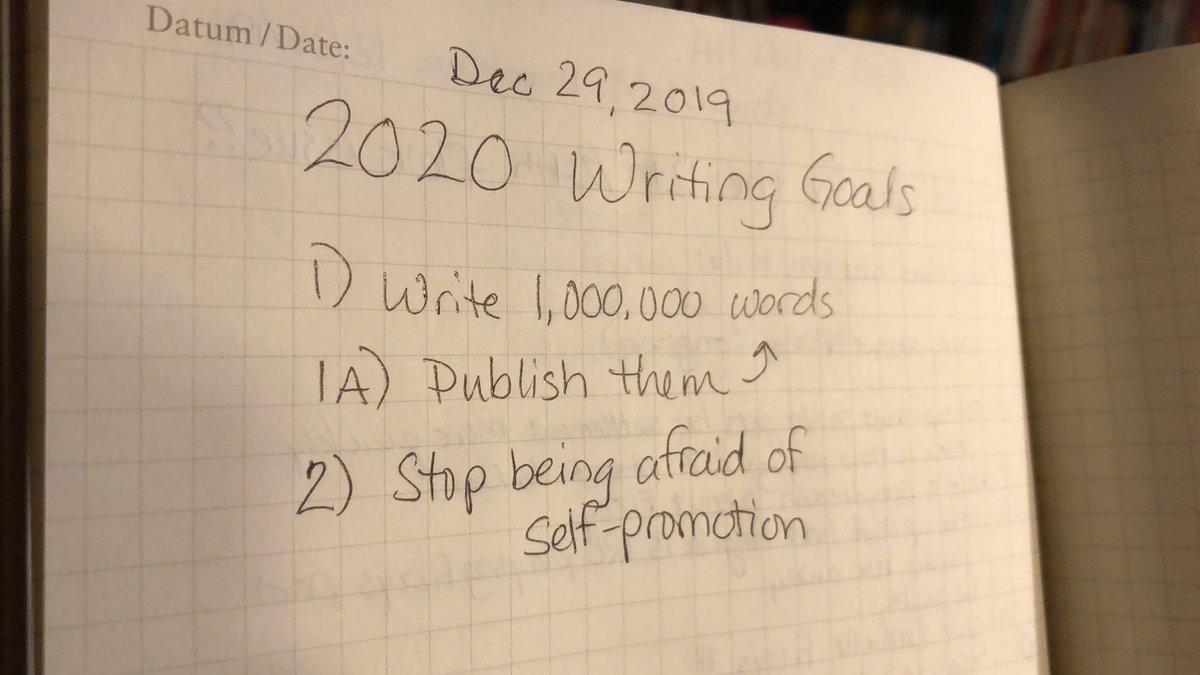 Datum / Date:
Dec 29, 2019
2020 Writing Goals
1) Write 1,000,000 words
1A) Publish them ↗
2) Stop being afraid of
self-promotion